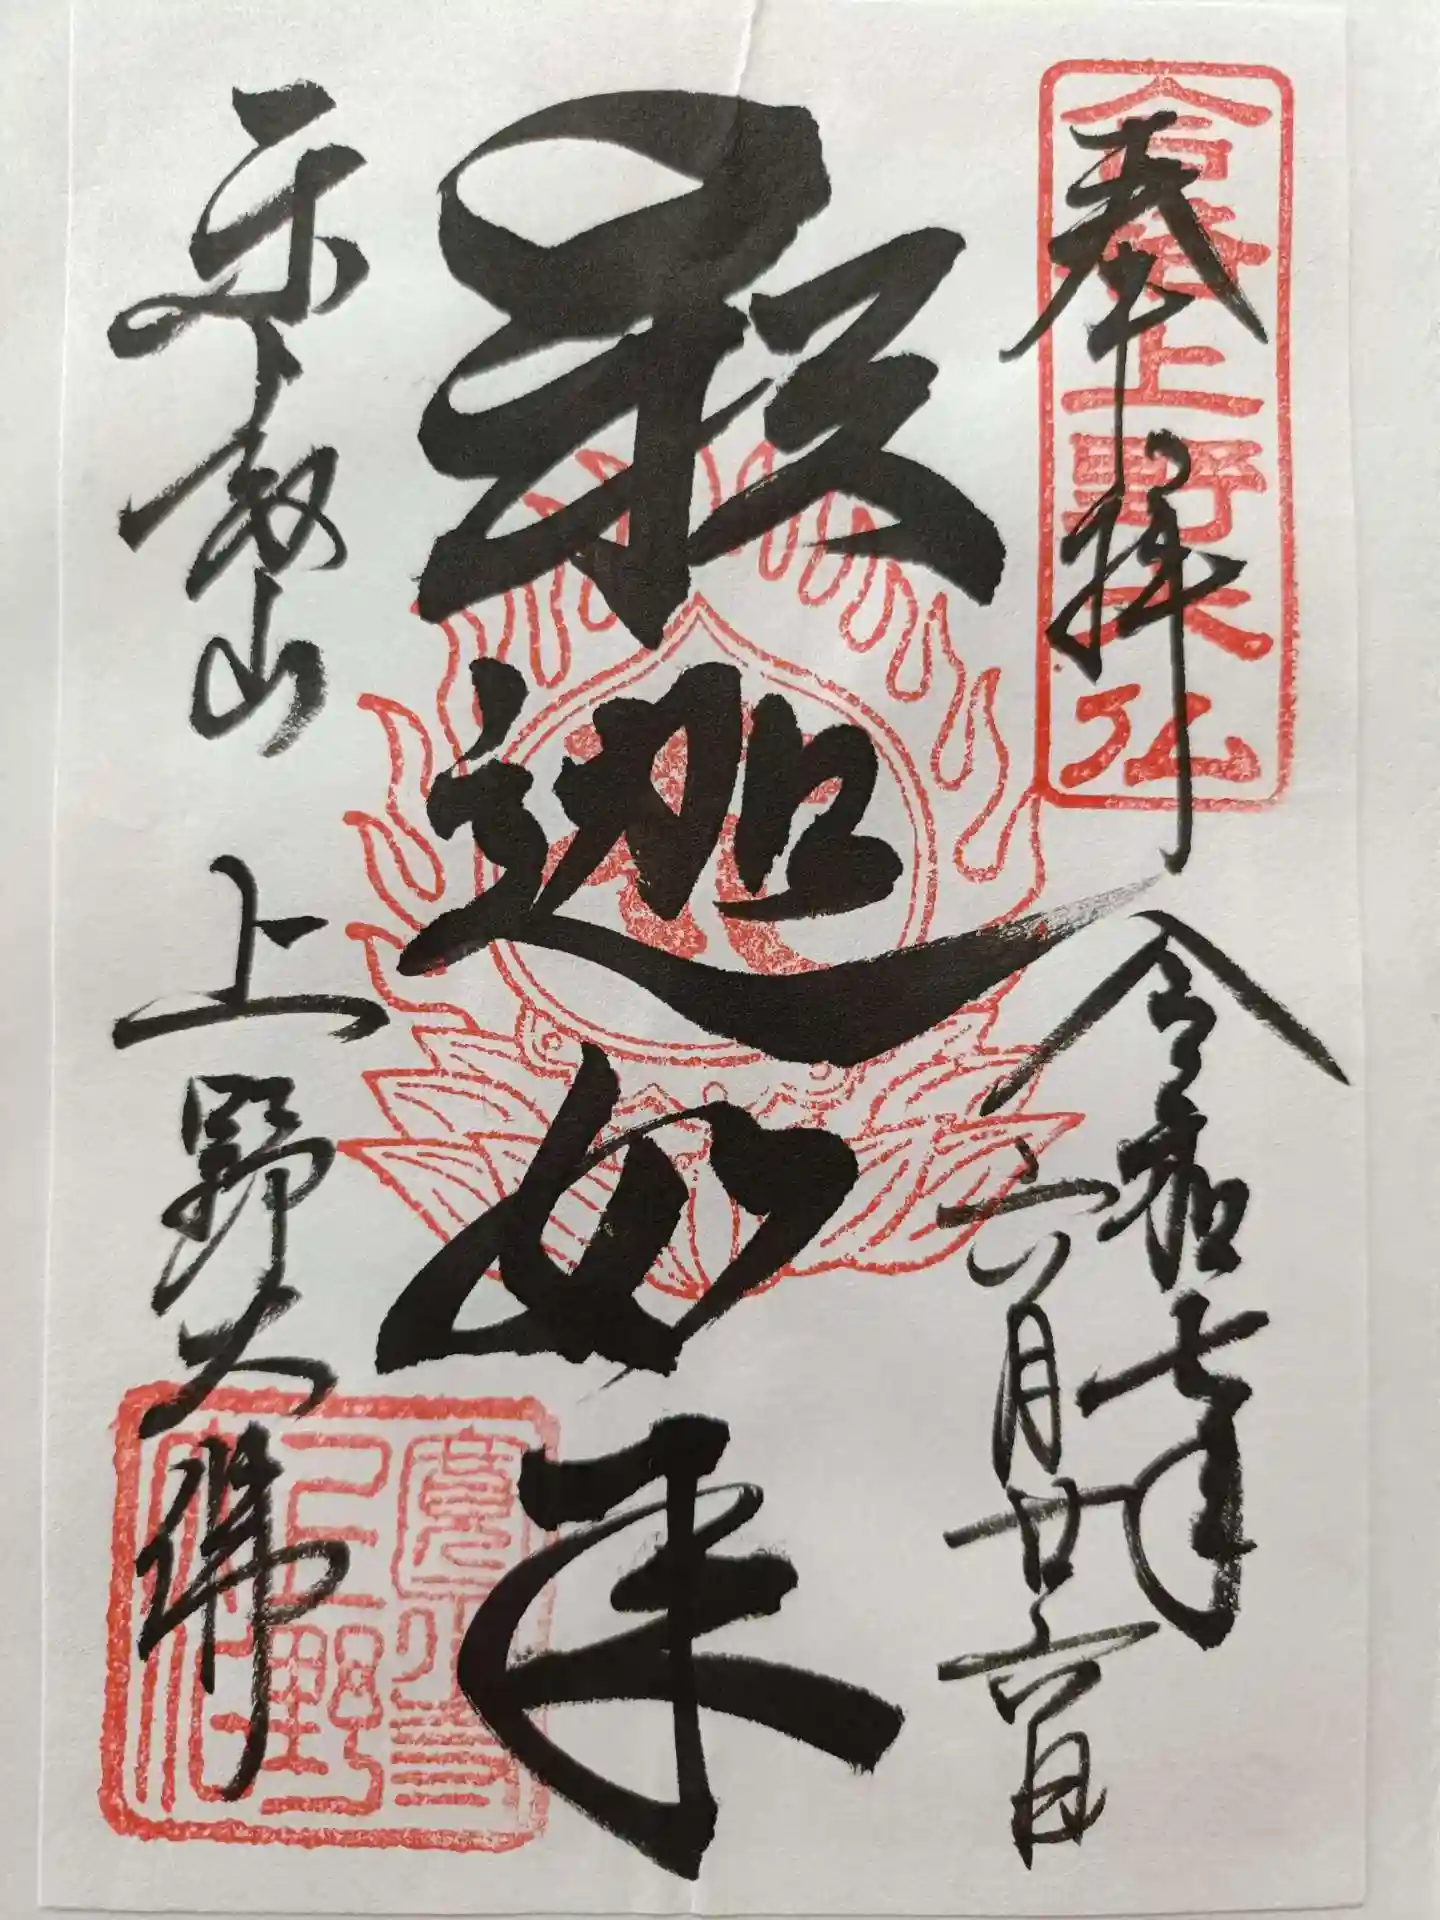 奉拝
令和七年
六月廿六日
釈迦如来
東叡山
上野大佛
上野大仏